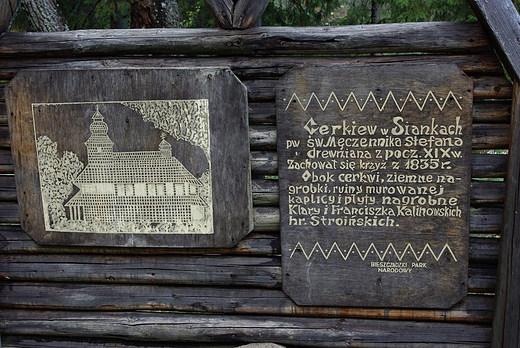 Cerkiew w Siankach
pw św.Męczennika Stefana
drewniana z pocz. XIX w.
Zachował się krzyż z 1835r.
Obok cerkwi, ziemne na-
grobki, ruiny murowanej
kaplicy i płyty nagrobne
Klary i Franciszka Kalinowskich
hr. Stroińskich.
BIESZCZADZKI PARK
NARODOWY